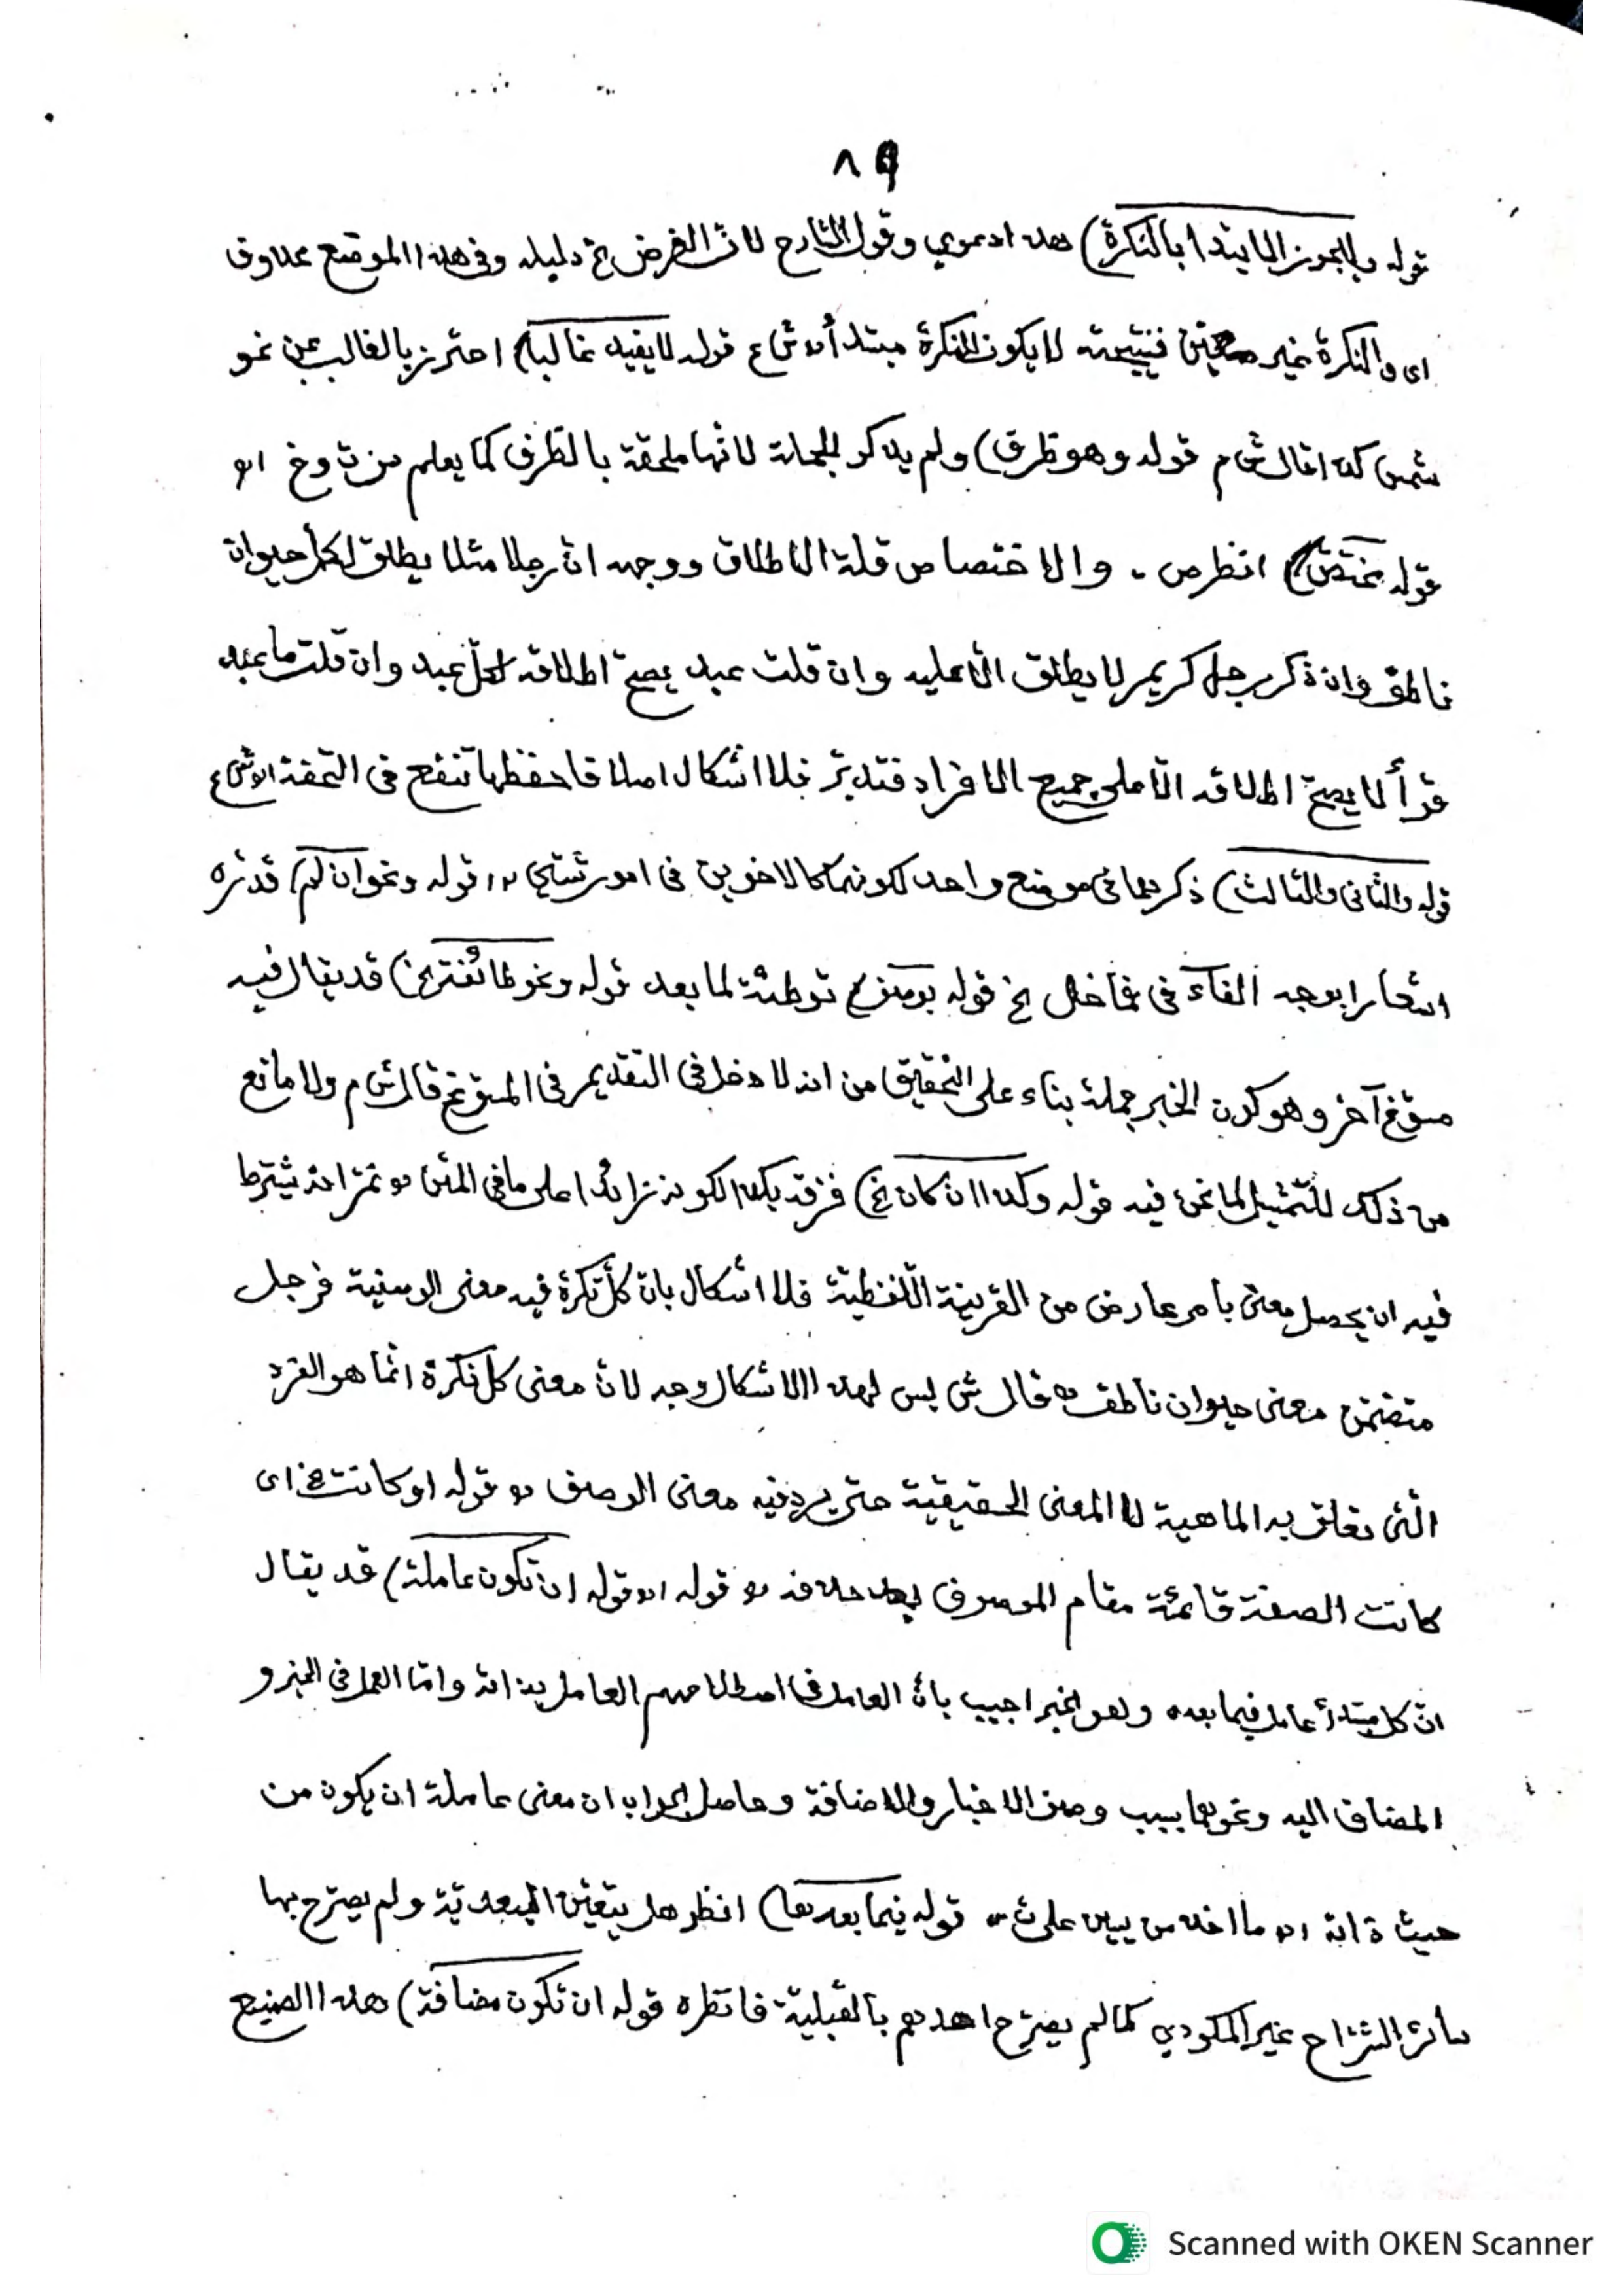 ٨٩
قوله ولا يجوز الابتدا بالنكرة) هذا دعوي وقول الشارح لانّ الغرض الخ دليله وفى هذا الموضع محذوف
اى والنكرة غير معيّن فنتيجته لا يكون النكرة مبتدأ اھ ش ع قوله لا يفيد غالبا) احترز بالغالب عن نحو
شمس كذا قال ش م قوله وهو ظرف) ولم يذكر الجملة لانّها ملحقة بالظرف كما يعلم من ث وخ اھ
قوله مختصّ) انظر ص . والاختصاص قلة الاطلاق ووجهه انّ رجلا مثلا يطلق لكلّ حيوان
ناطق وان ذكر رجل كريم لا يطلق الّا عليه وان قلت عبد يصحّ اطلاقه لكلّ عبد وان قلت ما عبد
قرأ لا يصحّ اطلاقه الّا على جميع الافراد فتدبّر فلا اشكال اصلا فاحفظها تنفع فى التحفة اھ ش ع
قوله والثانى والثالث) ذكرهما فى موضع واحد لكونهما كالاخوين فى امور شتّي اھ قوله ونحو ان لم) قدّره
اشعارا بوجه الفآء فى فما خل الخ قوله بومنزع) توطئة لما بعد قوله ونحو طائفة الخ) قد يقال فيه
مسوّغ آخر وهو كون الخبر جملة بناء على التحقيق من انه لا دخل فى التقديم فى المسوّغ قال ش م ولا مانع
من ذلك للتّمثيل لما نحن فيه قوله وكذا ان كان الخ) فزقد بكذا لكونه زائدا على ما فى المتن اھ ثمّ انه يشترط
فيه ان يحصل معنى بامر عارض من القرينة اللّفظيّة فلا اشكال بانّ كلّ نكرة فيه معنى الوصفية فرجل
متضمّن معنى حيوان ناطق اھ قال ش ليس لهذا الاشكال وجه لانّ معنى كلّ نكرة انّما هو الفرد
الّتى تعلق به الماهية لا المعنى الحقيقية حتى يرد فيه معنى الوصف اھ قوله او كانت الخ اى
كانت الصفة قائمة مقام الموصوف بعد حذفه اھ قوله اھ قوله ان تكون عاملة) قد يقال
انّ كل مبتدأ عامل فيما بعده وهو الخبر اجيب بانّ العامل فى اصطلاحهم العامل بذاته وامّا العمل فى الخبر و
المضاف اليه ونحوهما بسبب وصف الاخبار والاضافة وحاصل الجواب ان معنى عاملة ان يكون من
حيث ذاته اھ ما اخذ من يسٓ على ش اھ قوله فيما بعدها) انظر هل يتعيّن البعديّة ولم يصرّح بها
سائر الشرّاح غير المكودي كما لم يصرّح احدهم بالقبليّة فانظره قوله ان تكون مضافة) هذا الصنيع
Scanned with OKEN Scanner